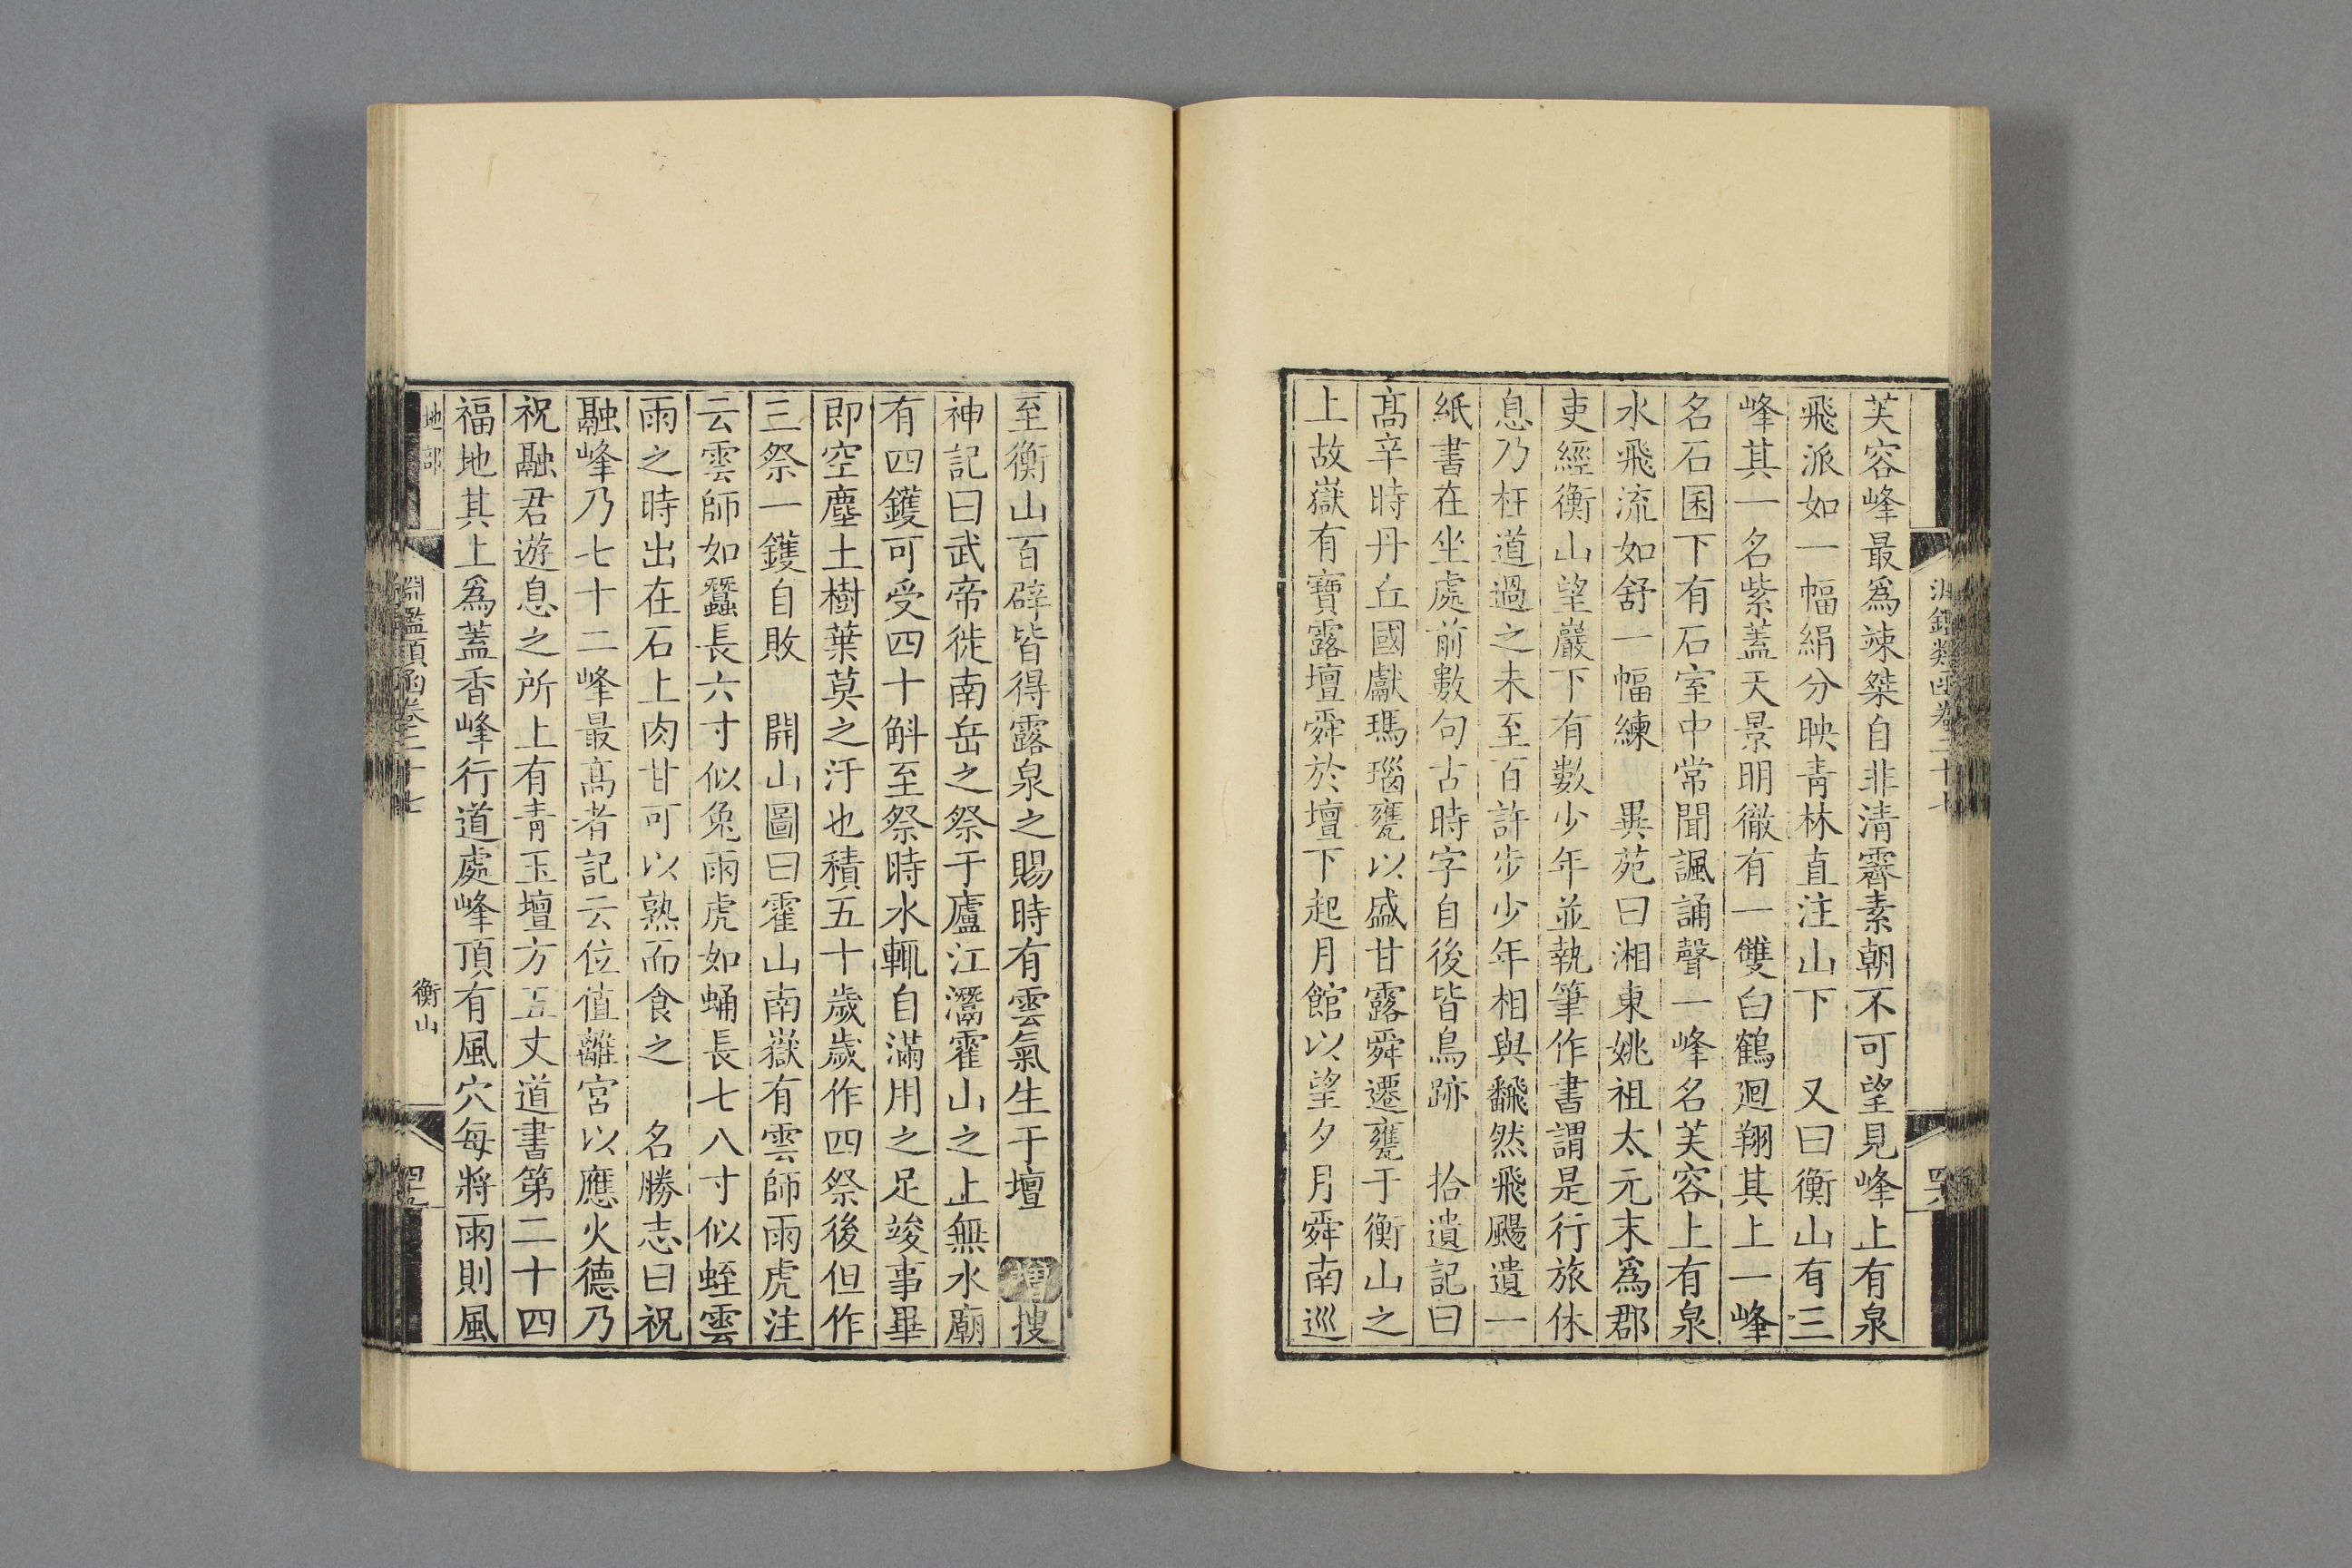 芙容峰最爲竦桀自非清霽素朝不可望見峰上有泉
飛派如一幅絹分映青林直注山下 又曰衡山有三
峰其一名紫蓋天景明徹有一雙白鶴廻翔其上一峰
名石囷下有石室中常聞諷誦聲一峰名芙容上有泉
水飛流如舒一幅練 異苑曰湘東姚祖太元末爲郡
吏經衡山望巖下有數少年並執筆作書謂是行旅休
息乃枉道過之未至百許步少年相與飜然飛颺遺一
紙書在坐處前數句古時字自後皆鳥跡 拾遺記曰
髙辛時丹丘國獻瑪瑙甕以盛甘露舜遷甕于衡山之
上故嶽有寶露壇舜於壇下起月館以望夕月舜南巡
至衡山百辟皆得露泉之賜時有雲氣生于壇 增搜
神記曰武帝徙南岳之祭于廬江灊霍山之上無水廟
有四鑊可受四十斛至祭時水輒自滿用之足竣事畢
即空塵土樹葉莫之汙也積五十歲歲作四祭後但作
三祭一鑊自敗 開山圖曰霍山南嶽有雲師雨虎注
云雲師如蠶長六寸似兔雨虎如蛹長七八寸似蛭雲
雨之時出在石上肉甘可以熟而食之 名勝志曰祝
融峰乃七十二峰最髙者記云位值離宮以應火德乃
祝融君遊息之所上有青玉壇方五丈道書第二十四
福地其上爲蓋香峰行道處峰頂有風穴每將雨則風
地部
淵鑑類函卷二十七
衡山